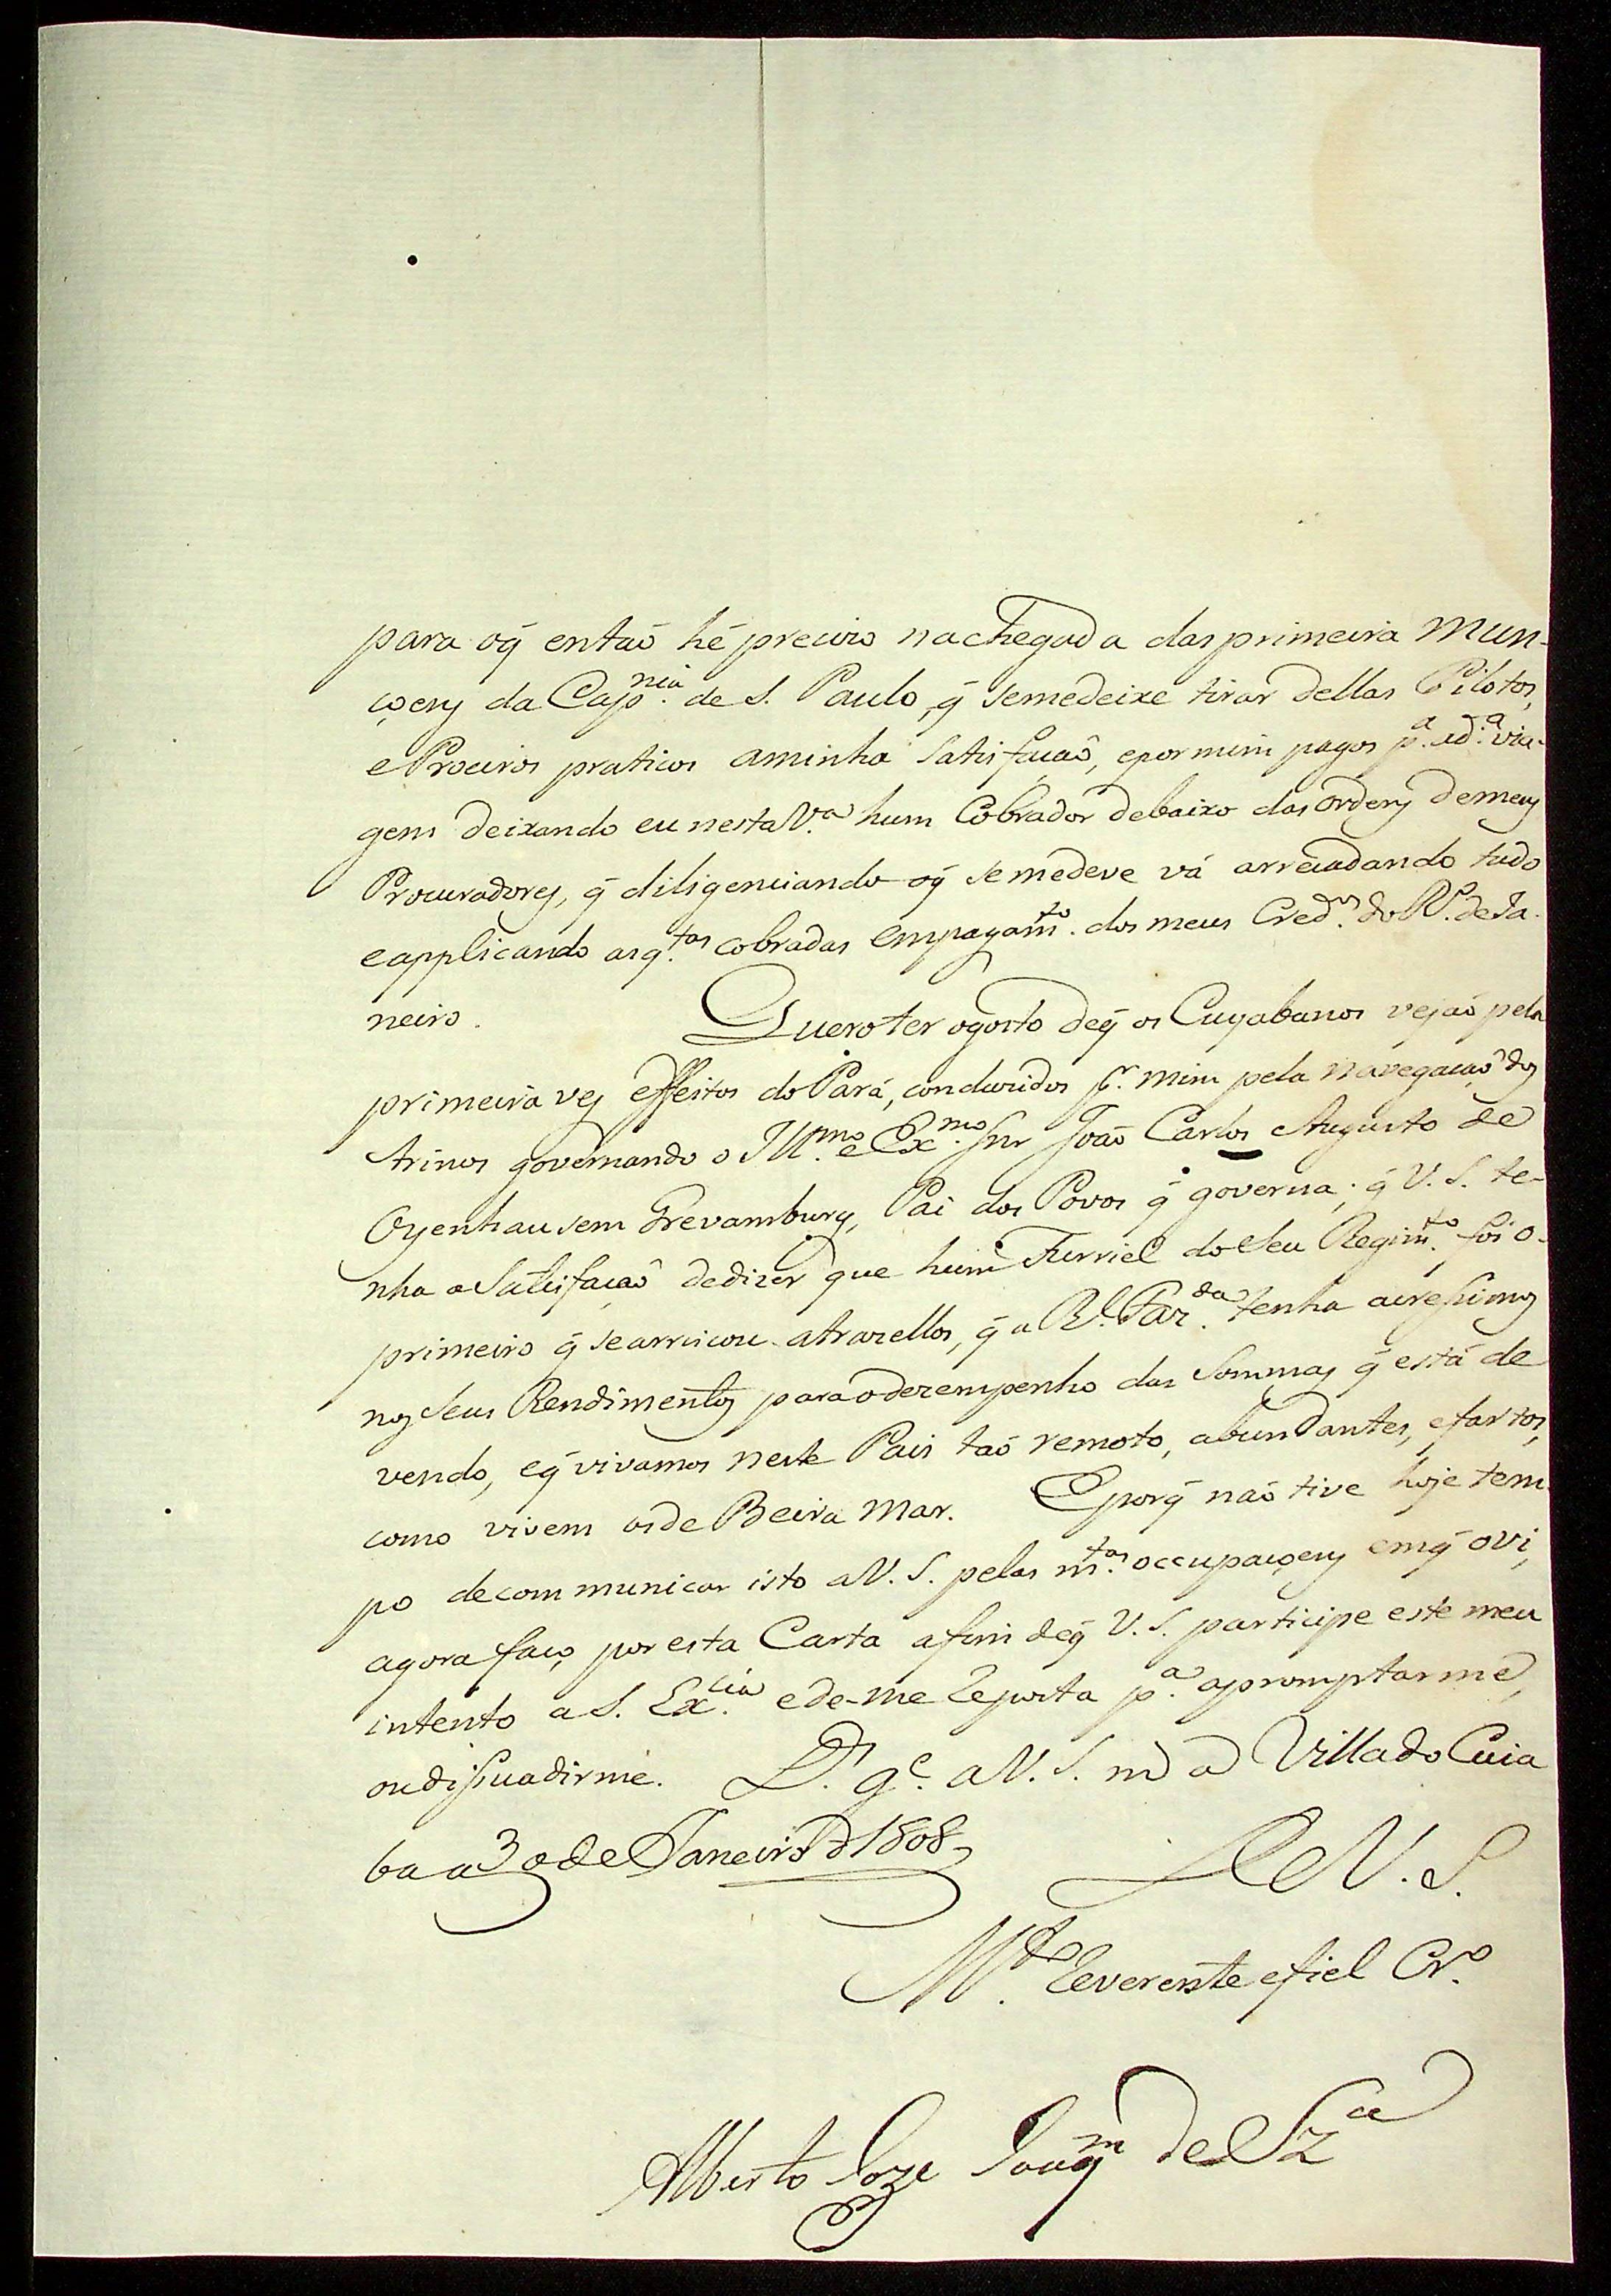 para oq̃ entaõ hé precizo na chegada das primeira Mun-
çoens da Cap.nia de S. Paulo, q̃ se me deixe tirar dellas Pilotos,
e Proeiros praticos a minha Satisfaçaõ, e por mim pagos p.a a d.a via-
gem deixando eu nesta V.a hum Cobrador debaixo das Ordens de meus
Procuradores, q̃ diligenciando oq̃ se me deve vá arrecadando tudo
e applicando as q.tas cobradas em pagam.to dos meus Cred.es do R.o de Ja-
neiro. Quero ter o gosto de q̃ os Cuyabanos vejaõ pela
primeira vez effeitos do Pará, conduzidos p.r mim pela navegaçaõ dos
Arinos governando o Ill.mo e Ex.mo Snr João Carlos Augusto de
Oyenhausem Grevamburg, Pai dos Povos q̃ governa; q̃ V. S. te-
nha a Satisfaçaõ de dizer que hum Furriel do Seu Regim.to foi o
primeiro q̃ se arriscou atrazellos, q̃ a R.l Faz.da tenha acressimos
nos Seus Rendimentos para o dezempenho das Sommas q̃ está de
vendo, e q̃ vivamos neste Pais taõ remoto, abundantes, e fartos,
como vivem os de Beira Mar. E porq̃ naõ tive hoje tem-
po de communicar isto a V. S. pelas m.tas occupaçoens em q̃ o vi,
agora faço por esta Carta a fim de q̃ V. S. participe este meu
intento a S. Ex.cia e de-me reposta p.a apromptarme,
ou dissuadirme. D.s g.e a V. S. m a Villa do Cuia
ba a 30 de Janeiro d 1808
De V. S.
M.to Reverente e fiel Cr.o
Alberto Joze Joaq.m de Sz.a